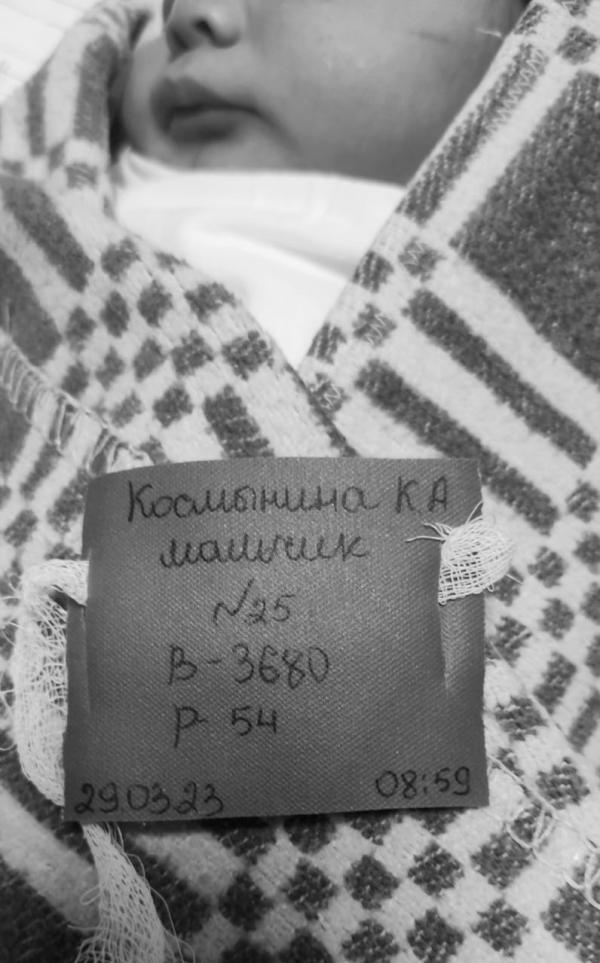 Космынина К А
мальчик
N25
В-3680
Р- 54
29.03.23 08:59